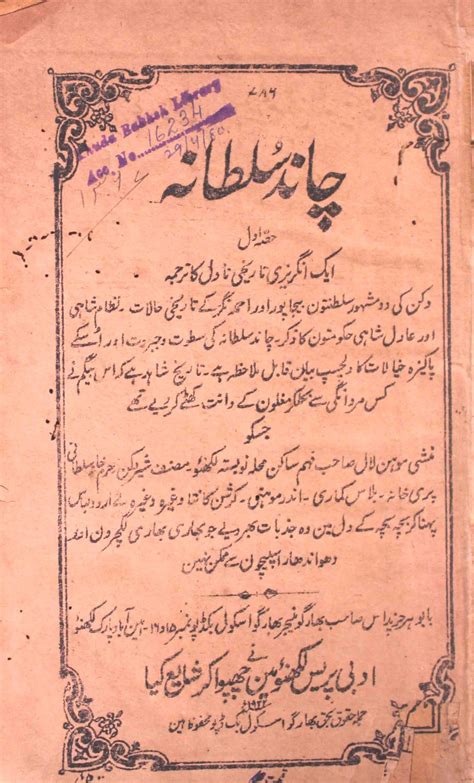 ۷۸۶
Khuda Bakhsh Library
Acc. No. 16234
29/4/60
چاند سُلطانہ
حصّہ اول
ایک انگریزی تاریخی ناول کا ترجمہ
دکن کی دو مشہور سلطنتون بیجاپور اور احمد نگر کے تاریخی حالات۔ نظام شاہی
اور عادل شاہی حکومتون کا ذکر۔ چاند سلطانہ کی سطوت و جبروت اور اُسکے
پاکیزہ خیالات کا دلچسپ بیان قابل ملاحظہ ہے۔ تاریخ شاہد ہے کہ اس بیگم نے
کس مردانگی سے مغلون کے دانت کھٹے کر دیے تھے
جسکو
منشی موہن لال صاحب فہم ساکن محلہ نوبستہ لکھنؤ۔ مصنف شیر دکن۔ حرم خانہ سلطانی
پری خانہ۔ بلاس کماری۔ اندر موہنی۔ کرشن کانتا وغیرہ وغیرہ نے اردو لباس
پہنا کر بچہ بچہ کے دل مین وہ جذبات بھر دیے جو بھاری بھاری لکچرون اور
دھواندھار اسپیچون سے ممکن نہین
بابو ہر صاحب بھارگو منیجر بھارگو اسکول بکڈپو نمبر ۱۵ و ۱۶ امین آباد پارک لکھنؤ نے
ادبی پریس لکھنؤ مین چھپوا کر شایع کیا
جملہ حقوق بحق بھارگو اسکول بک ڈپو محفوظ ہین